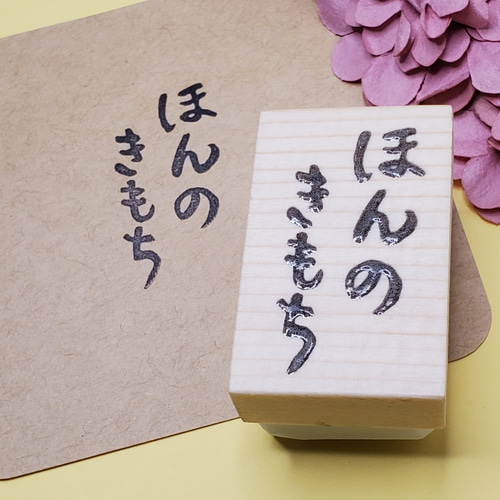 ほんの
きもち
ほんの
きもち